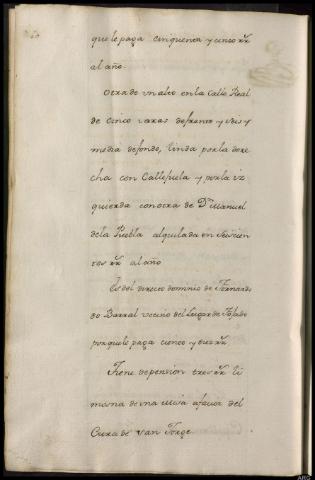 que le paga cinquenta y cinco rr
al año.
Otra de un alto en la Calle Real
de cinco varas de frente y seis y
media de fondo, linda por la dere
cha con Callejuela y por la iz
quierda con otra de Dn Manuel
de la Puebla alquilada en seiscien
tos rr al año
Es del directo dominio de Fernando
do Barral vecino del Lugar de
por que le paga ciento y rr
Tiene de pension tres rr li
mosna de una Missa a favor del
Cura de San Jorge.
ARG